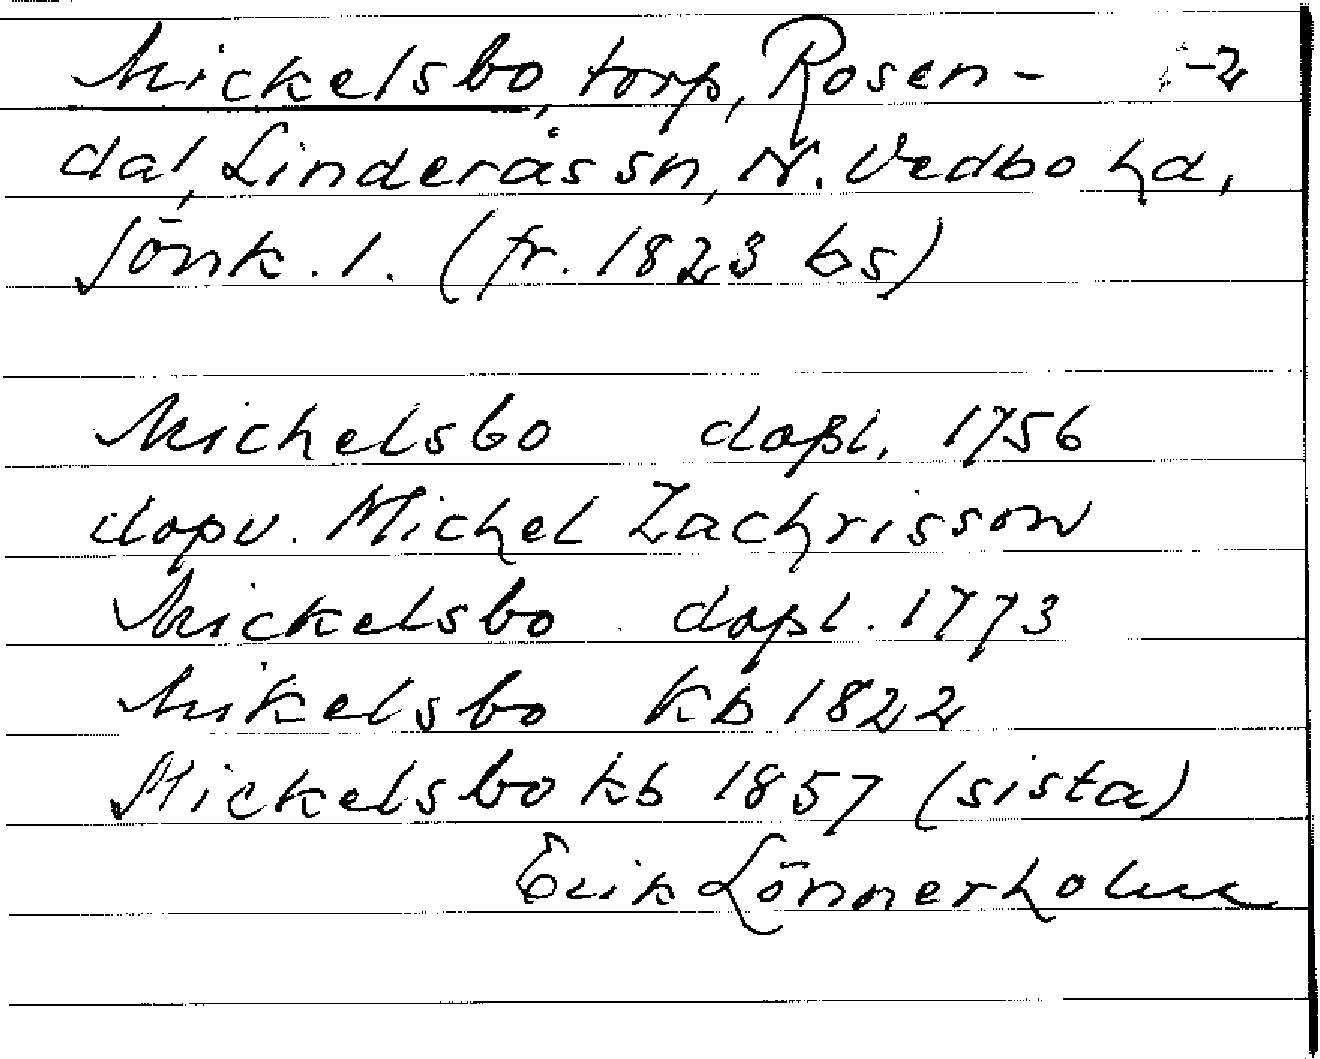 Mickelsbo, torp, Rosen- -2
dal, Linderås sn, N. Vedbo hd,
Jönk. l. (fr. 1823 bs)
Michelsbo dopl. 1756
dopv. Michel Zachrisson
Mickelsbo dopl. 1773
Mikelsbo kb 1822
Mickelsbo kb 1857 (sista)
Erik Lönnerholm